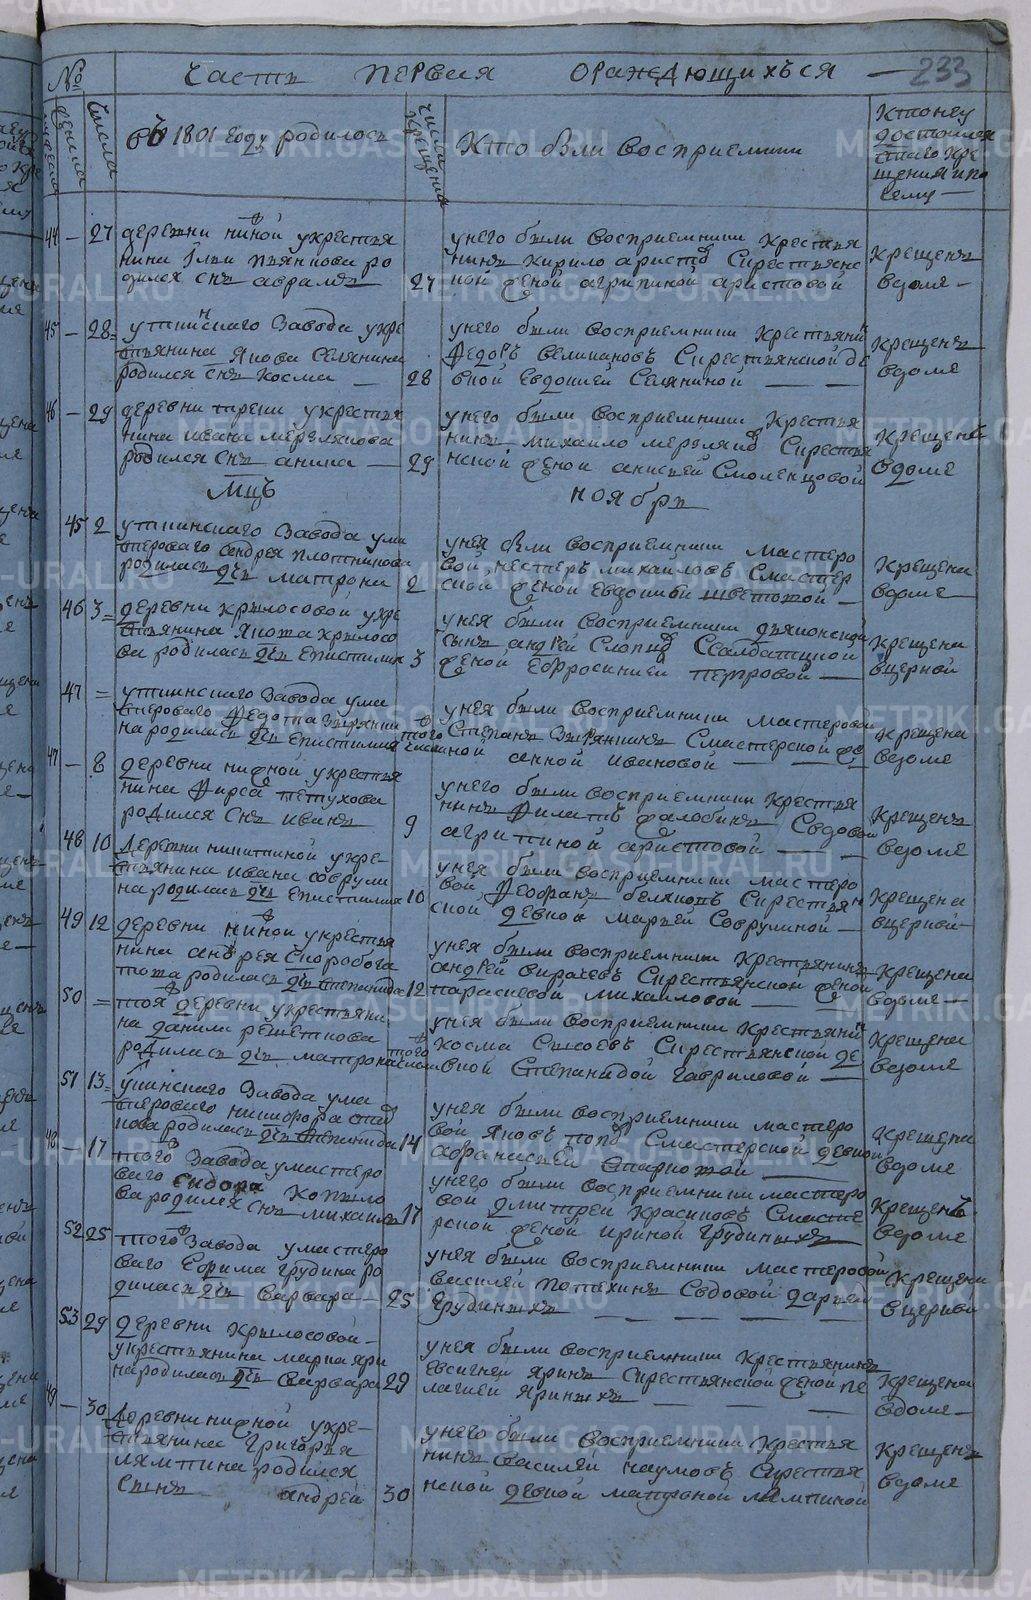 Часть первая ораждающихъся 233
№
числа
въ 1801 году родилось
числа крещения
Кто были восприемники
44 — 27 деревни нижной укрестья
нина Ильи пьянкова ро
дился снъ аврамъ 27
унего были восприемники крестья
нинъ кирило аристо Скрестьянс
ной женой агрипиной аристовой
крещенъ
вдоме —
45 — 28 = уткинскаго завода укре
стьянина Якова Селянина
родился снъ косма — 28
унего были восприемники крестьяни
Федоръ великановъ Скрестьянской де
вкой Евдокией Селяниной — —
крещенъ
вдоме
46 — 29 деревни треки укрестья
нина ивана мерзлякова
родился снъ аника — 29
унего были восприемники крестья
нинъ михайло мерзляко Скрестья
нской женой анисьей Смоленцовой
крещенъ
вдоме
Мцъ ноябрь
45 2 уткинскаго завода ума
стероваго андрея плотникова
родилась дчь матрона 2
унея были восприемники мастеро
вой нестеръ михаиловъ Смастер
ской женой Евдокией —
крещена
вдоме
46 3 = деревни крылосовой укре
стьянина Якова крылосо
ва родилась дчь епистимия 3
унея были восприемники дьяконской
сынъ андрей Слопцо Ссалдатцкой
женой Ефросинией петровой —
крещена
вцеркви
47 = уткинскаго завода ума
стероваго Федота Зырянки
на родилась дчь епистимия того числа
унея были восприемники мастеровой
Степанъ Зырянкинъ Смастерской же
ной анной ивановой — — —
крещена
вдоме
47 — 8 деревни нижной укрестья
нина Фирса петухова
родился снъ иванъ 9
унего были восприемники крестья
нинъ Филатъ жалобинъ Свдовой
агрипиной аристовой — —
крещенъ
вдоме
48 10 деревни никитиной укре-
стьянина ивана соврули
на родилась дчь епистимия 10
унея были восприемники мастеро
вой Феофанъ белянъ Скрестьян
ской девкой марьей Соврулиной —
крещена
вцеркви —
49 12 деревни нижной укрестья
нина андрея скоробога
това родилась дчь степанида 12
унея были восприемники крестьянинъ
андрей вирачевъ Скрестьянской женой
парасковьей михаиловой —
крещена
вдоме —
50 = тоя деревни укрестьяни
на данила решеткова
родилась дчь матрона того числа
унея были восприемники крестьянин
Косма Сысоевъ Скрестьянской де
вкой Степанидой гавриловой —
крещена
вдоме
51 13 = уткинскаго завода ума
стероваго никифора
нова родилась дчь степанида 14
унея были восприемники мастеро
вой Яковъ попо Смастерской девкой
афанасьей
крещена
вдоме
48 — 17 того завода умастеро
ваго Сидора копыло
ва родился снъ михаилъ 17
унего были восприемники мастеро
вой дмитрей красиковъ Смасте
рской женой ириной грудиныхъ
крещенъ
вдоме
52 25 того завода умастеро
ваго Ефима грудина ро
дилась дчь варвара — 25
унея были восприемники мастеровой
василей потехинъ Свдовой дарьей
грудиныхъ — — — —
крещена
вцеркви
53 29 деревни крылосовой —
укрестьянина марка яри
на родилась дчь варвара 29
унея были восприемники крестьянинъ
евсигней яринъ Скрестьянской женой пе
лагией яриныхъ — — —
крещена
вдоме —
49 — 30 деревни нижной укре-
стьянина григорья
лямпина родился
сынъ андрей 30
унего были восприемники крестья
нинъ василей наумовъ Скрестья
нской девкой матроной лямпиной
крещенъ
вдоме